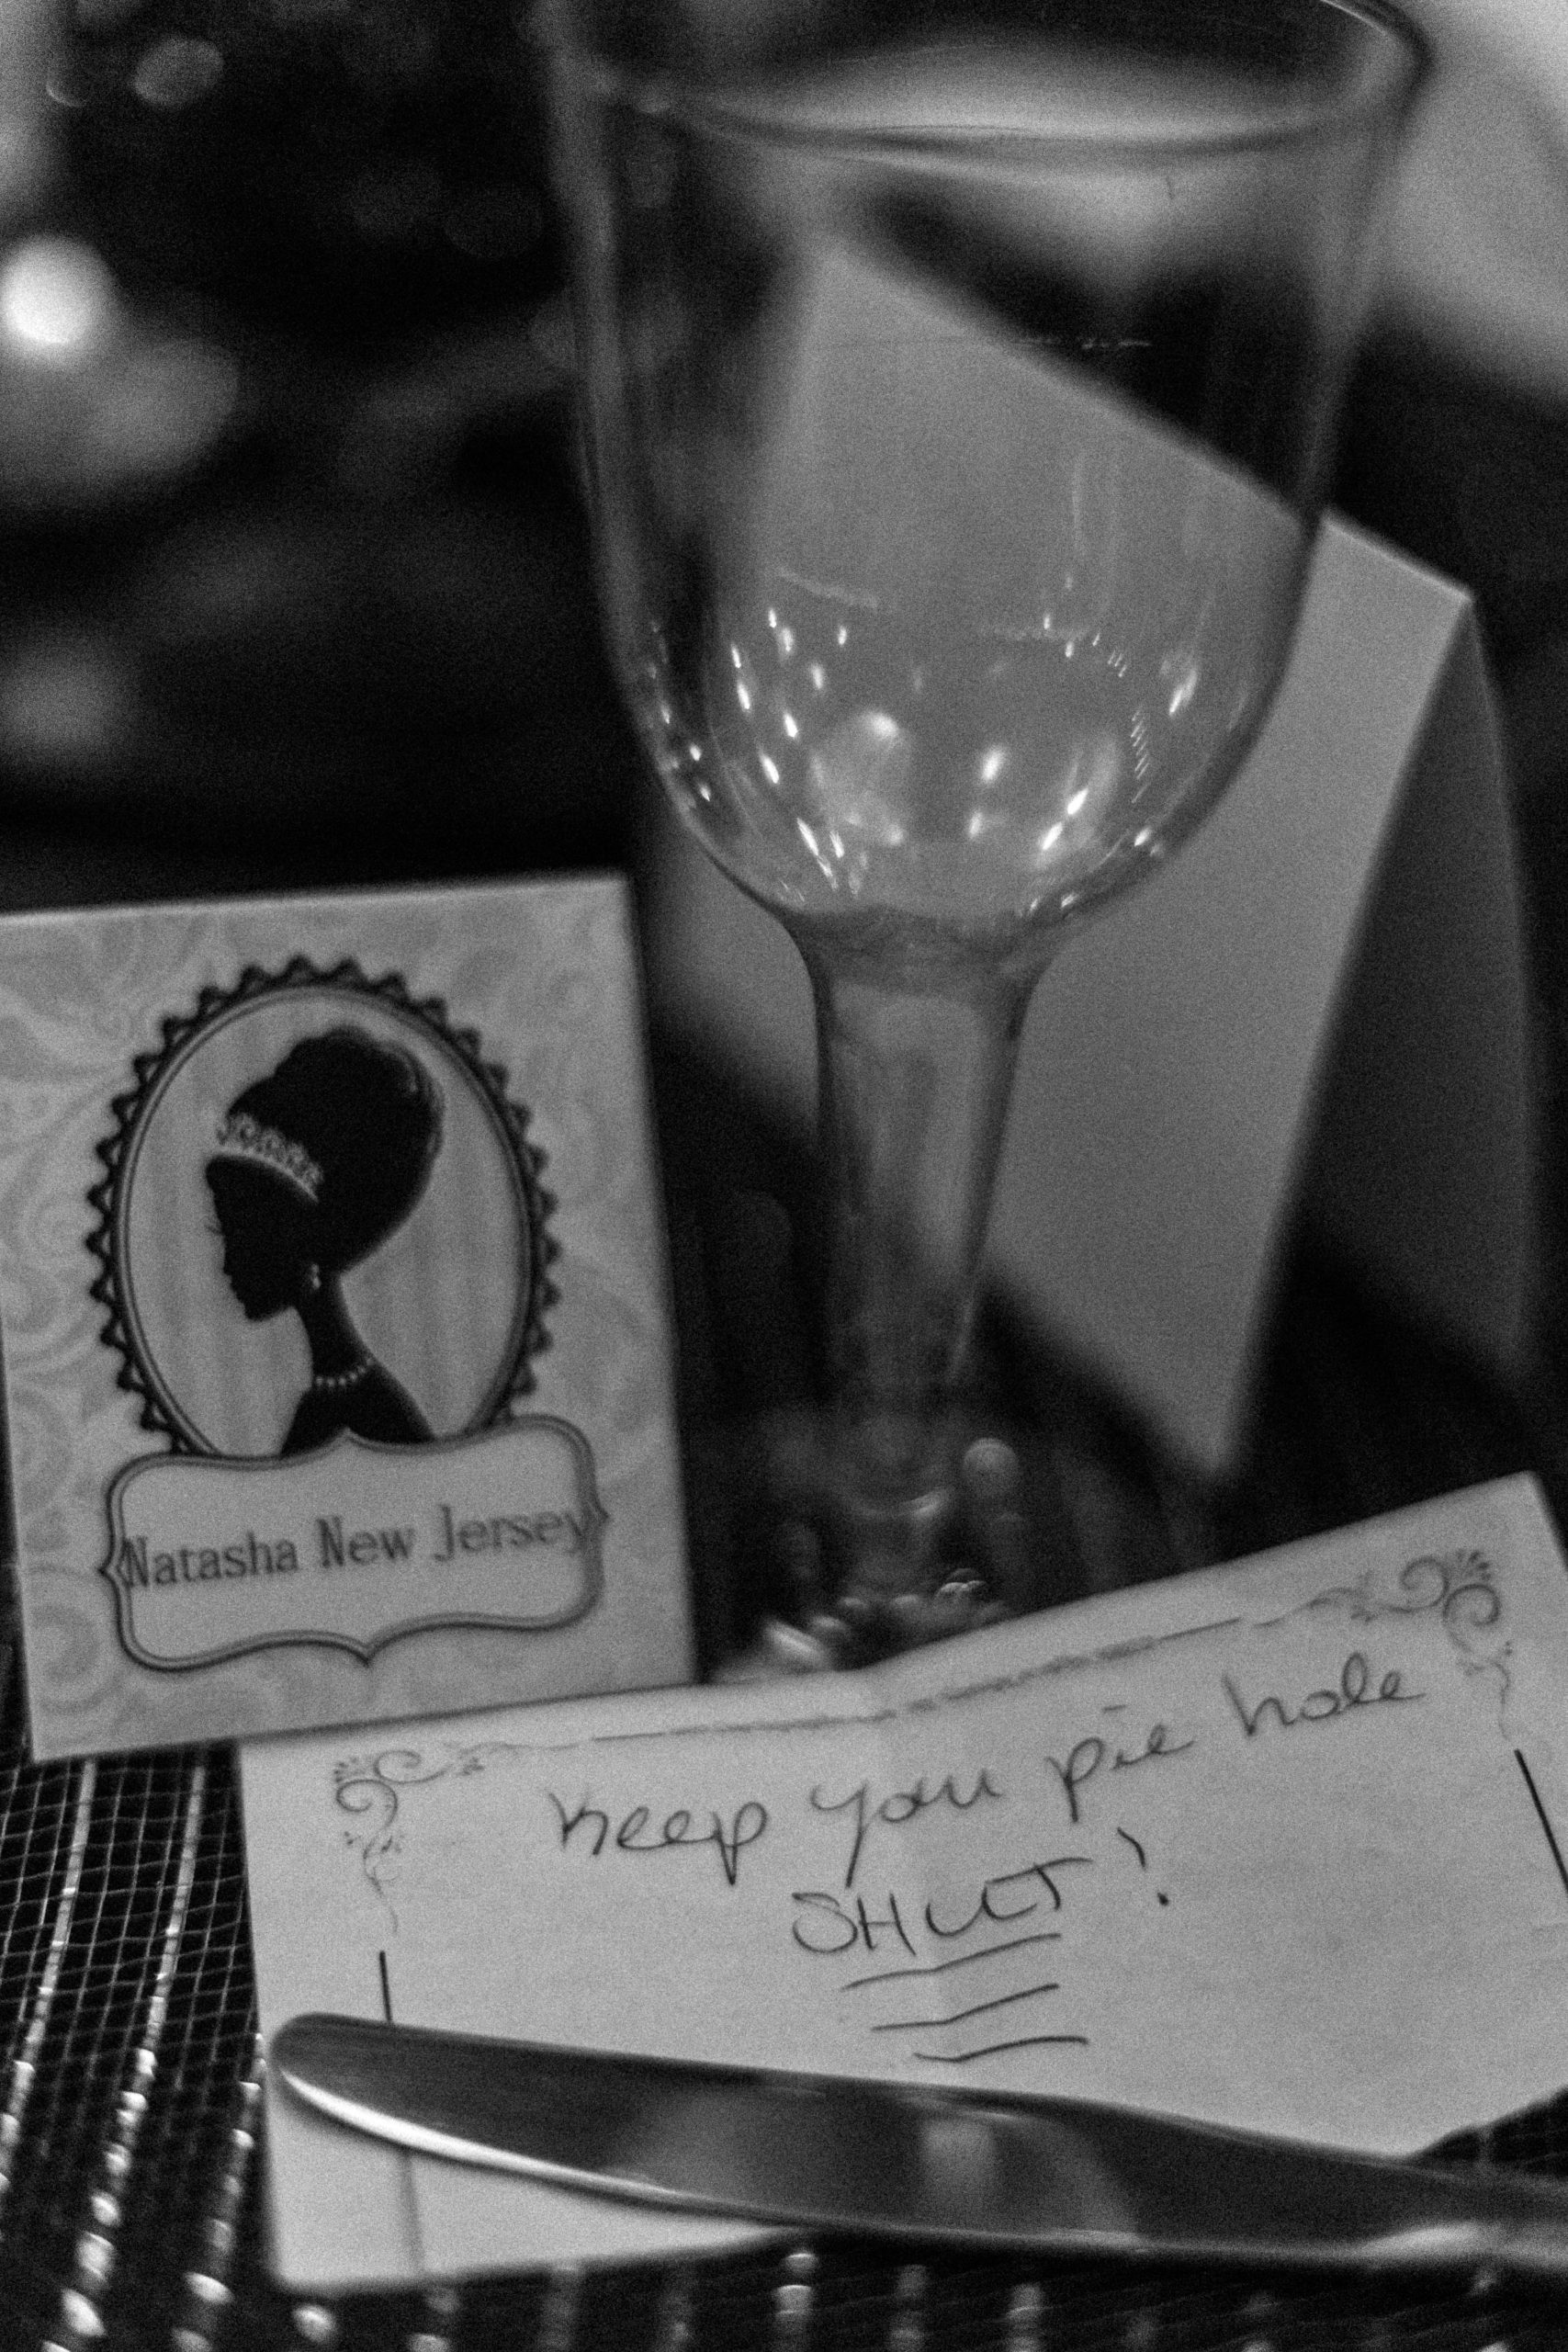 Natasha New Jersey
Keep your pie hole
SHUT!